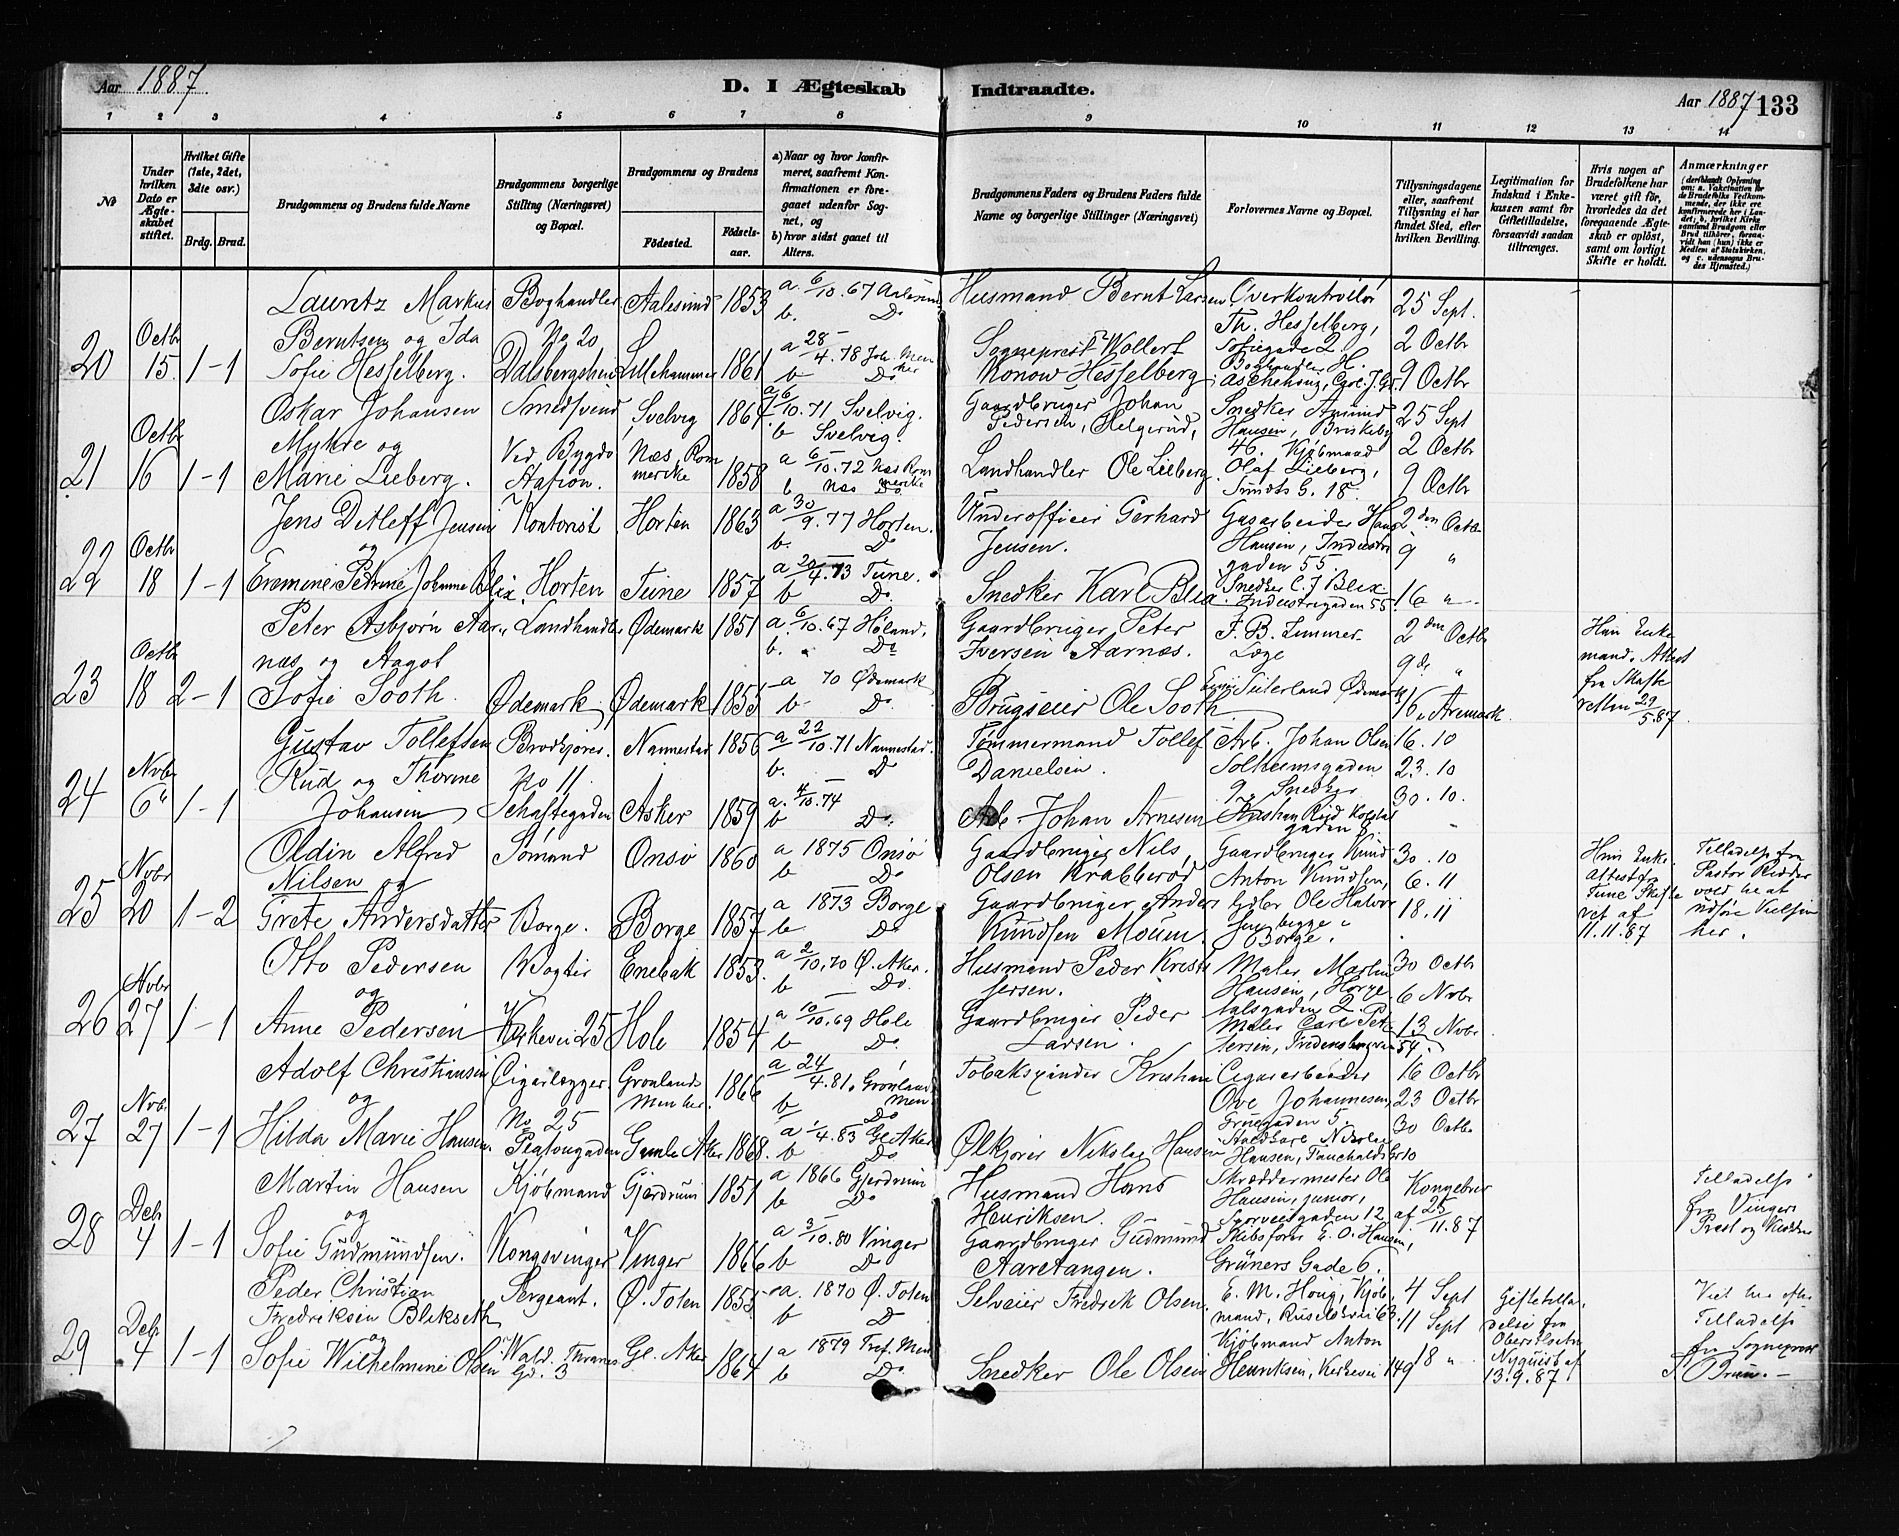 Aar 1887.
D. I Ægteskab Indtraadte.
Aar 1887 133
1 2 3 4 5 6 7 8 9 10 11 12 13 14
No
Under hvilken Dato er Ægteskabet stiftet.
Hvilket Gifte (1ste, 2det, 3die osv.)
Brdg. Brud.
Brudgommens og Brudens fulde Navne
Brudgommens borgerlige Stilling (Næringsvei) og Bopæl.
Brudgommens og Brudens
Födested. Födselsaar.
a) Naar og hvor konfirmeret, saafremt Konfirmationen er foregaaet udenfor Sognet, og
b) hvor sidst gaaet til Alters.
Brudgommens Faders og Brudens Faders fulde Navne og borgerlige Stillinger (Næringsvei)
Forlovernes Navne og Bopæl.
Tillysningsdagene eller, saafremt Tillysning ei har fundet Sted, efter hvilken Bevilling.
Legitimation for Indskud i Enkekassen samt for Giftetilladelse, forsaavidt saadan tiltrænges.
Hvis nogen af Brudefolkene har været gift før, hvorledes da det foregaaende Ægteskab er opløst, samt om lovligt Skifte er holdt.
Anmærkninger
20 Octbr 15. 1-1
Lauritz Markus Berntsen og Ida Sofie Hesselberg.
Boghandler No 20 Dalsbergstien
Aalesund 1853 a. 6/10.67 Aalesund b. Do
Lillehammer 1861 a 28/4.78 Joh. Menher b Do
Husmand Bernt Larsen
Sogneprest Wollert Konow Hesselberg
Overkontrolør Th. Hesselberg, Sofiegade 2. Boghandler H. Aschehoug, Carl J. G.
25 Sept. 2 Octbr 9 Octbr
21 Octbr 16 1-1
Oskar Johansen Myhre og Marie Lieberg.
Smedsvend Ved Bygdø Station.
Svelvig 1864 a 6/10.71 Svelvig. b Svelvig.
Næs, Rommerike 1858 a 6/10.72 Næs Rommerike b Næs Do.
Gaardbruger Johan Pedersen, Helgerud,
Landhandler Ole Lieberg.
Snedker Amund Hansen, Briskeby 46. Kjøbmand Olaf Lieberg, Sundts G. 18.
25 Sept 2 Octbr 9 Octbr
22 Octbr 18 1-1
Jens Detleff Jensen og Eremine Petrine Johanne Blix.
Kontorist Horten
Horten 1863 a 30/9.77 Horten. b. Do
Tune 1857 a 20/4.73 Tune. b Do.
Underofficer Gerhard Jensen.
Snedker Karl Blix
Gasarbeider Hans Hansen, Industrigaden 55. Snedker C. J Blix Industrigaden 55.
2den Octbr 9 " 16 "
23 Octbr 18 2-1
Peter Asbjørn Aarnæs og Aagot Sofie Sooth.
Landhandler Ødemark
Ødemark 1851 a. 6/10.67 Høland, b. Do
Ødemark 1855 a 70 Ødemark b Do.
Gaardbruger Peter Iversen Aarnæs.
Brugseier Ole Sooth
F. B. Zimmer. Læge
2den Octbr 9de " 16 " Aremark
Han Enkemand. Attest fra Skifteretten 29/5.87.
24 Novbr 6" 1-1
Gustav Tollefsen Rud og Thorine Johansen
Brødkjører No 11. Schaftegaden
Nannestad 1856 a 22/10.71 Nannestad. b. Do
Asker 1859 a. 4/10.74 b Do.
Tømmermand Tollef Danielsen.
Arb. Johan Arnesen
Arb. Johan Olsen Tolheimsgaden 9, Snedker
16.10 23.10 30.10.
25 Novbr 20 1-2
Oldin Alfred Nilsen og Grete Andersdatter
Sømand Borge.
Onsø 1860 a 1875 Onsø b Do
Borge 1857 a 1873 Borge b Do
Gaardbruger Nils Olsen Krabberød
Gaardbruger Anders Knudsen Moum.
Gaardbruger Knud Anton Knudsen, Gdbr Ole Halvorsen begge Borge.
30.10 6.11 18.11
Hun Enke. Attest fra Tune Skifteret af 11.11.87
Tilladelse fra Pastor Ridder
26 Novbr 27 1-1
Otto Pedersen og Anne Pedersen
Vogter Kirkevei 25
Enebak 1853. a 2/10.70 Ø. Aker. b Do.
Hole 1854 a 10/10.69 Hole b Do.
Husmand Peder Kristofersen.
Gaardbruger Peder Larsen.
Maler Martin Hansen, Maler Carl Petersen, Fredensborgvei 54.
30 Octbr 6 Novbr 13 Novbr
27 Novbr 27 1-1
Adolf Christiansen og Hilda Marie Hansen.
Cigarlægger No 25
Grønlands Menhed. 1866 a 24/4.81. Grønland Men b Do
Gamle Aker 1868. a /4.83 Gl. Aker b Do
Tobakspinder Kristian
Ølkjører Nikolai Hansen
Cigararbeider Ove Johannesen, Gruegaden 5. Staldkarl Nikolai Hansen, Fauchalds G. 10
16 Octbr 23 Octbr 30 Octbr
28 Debr 4 1-1
Martin Hansen og Sofie Gudmundsen.
Kjøbmand Kongsvinger
Gjerdrum 1851 a 1866 Gjerdrum b Do
Vinger 1866 a 3/10.80 Vinger b Do
Husmand Hans Henriksen.
Gaardbruger Gudmund Aaretangen.
Skræddermester Ole Hansen, junior, Sporveisgaden 12. Skibsfører E. O. Hansen, Grüners Gade 6.
Kongebrev af 25/11.87
Tilladelse fra Vinger Præst
29 Debr 4 1-1
Peder Christian Fredriksen Blikseth og Sofie Wilhelmine Olsen
Sergeant. Wald. Thranes Gd. 3
Ø. Toten 1855 a. 1870 Ø. Toten b Do
Gl. Aker 1864 a 1879 Tref. Men b Do.
Selveier Fredrik Olsen.
Snedker Ole Olsen
E. M. Honig, Kjøbmand, Ruseløkvei 63. Kjøbmand Anton Henriksen, Kirkevei 149
4 Sept 11 Sept 18 "
Giftetilladelse fra Oberstløitn Nyquist af 13.9.87
Viet her efter Tilladelse fra Sogneprest J. Bruun.